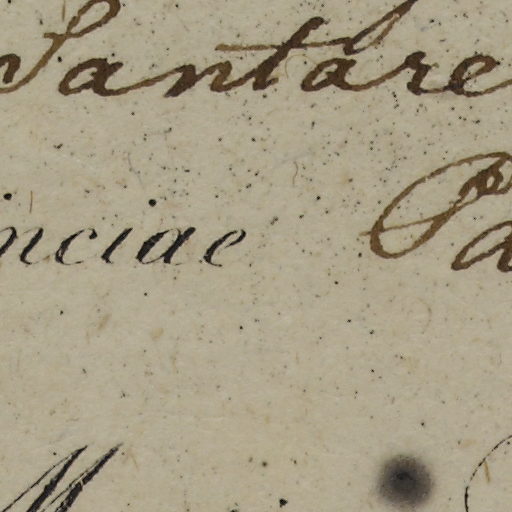 Santare
inciae Pa
M